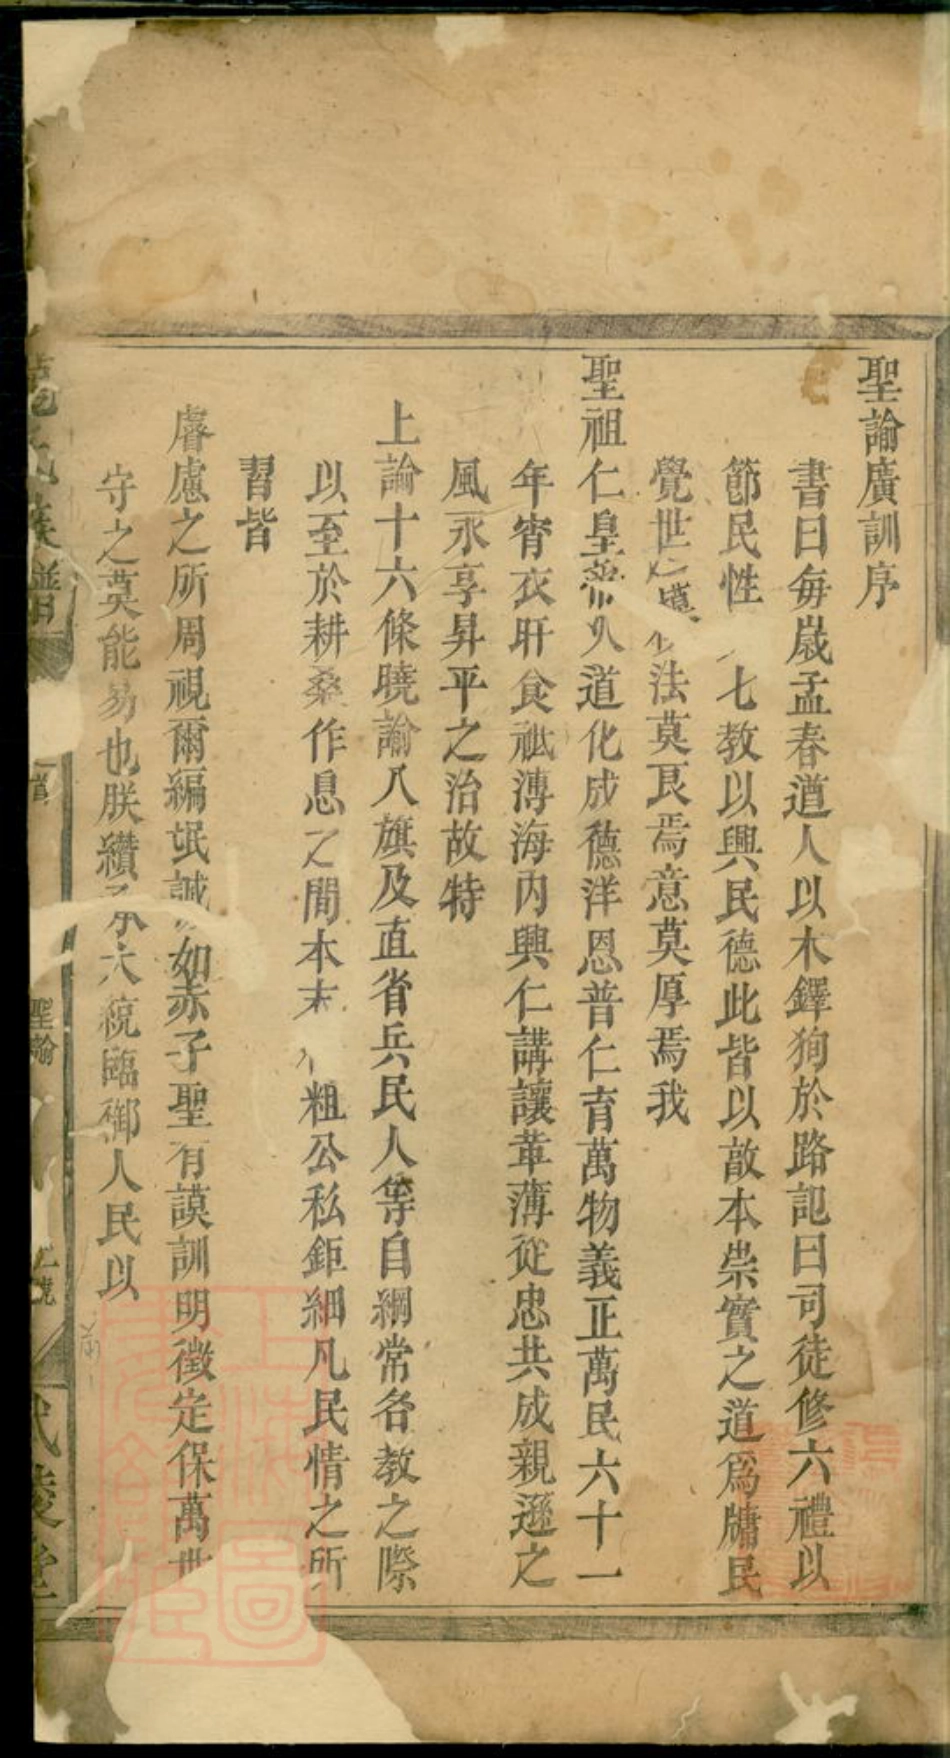 聖諭廣訓序
書曰每嵗孟春遒人以木鐸狥於路記曰司徒修六禮以
節民性七教以興民德此皆以敦本崇實之道為牖民
覺世之謨法莫良焉意莫厚焉我
聖祖仁皇帝久道化成德洋恩普仁育萬物義正萬民六十一
年宵衣旰食祗溥海內興仁講讓革薄從忠共成親遜之
風永享昇平之治故特
上諭十六條曉諭八旗及直省兵民人等自綱常名教之際
以至於耕桑作息之間本末粗公私鉅細凡民情之所
習皆
睿慮之所周視爾編氓誠如赤子聖有謨訓明徵定保萬世
守之莫能易也朕纘承大統臨御人民以
族譜
聖諭